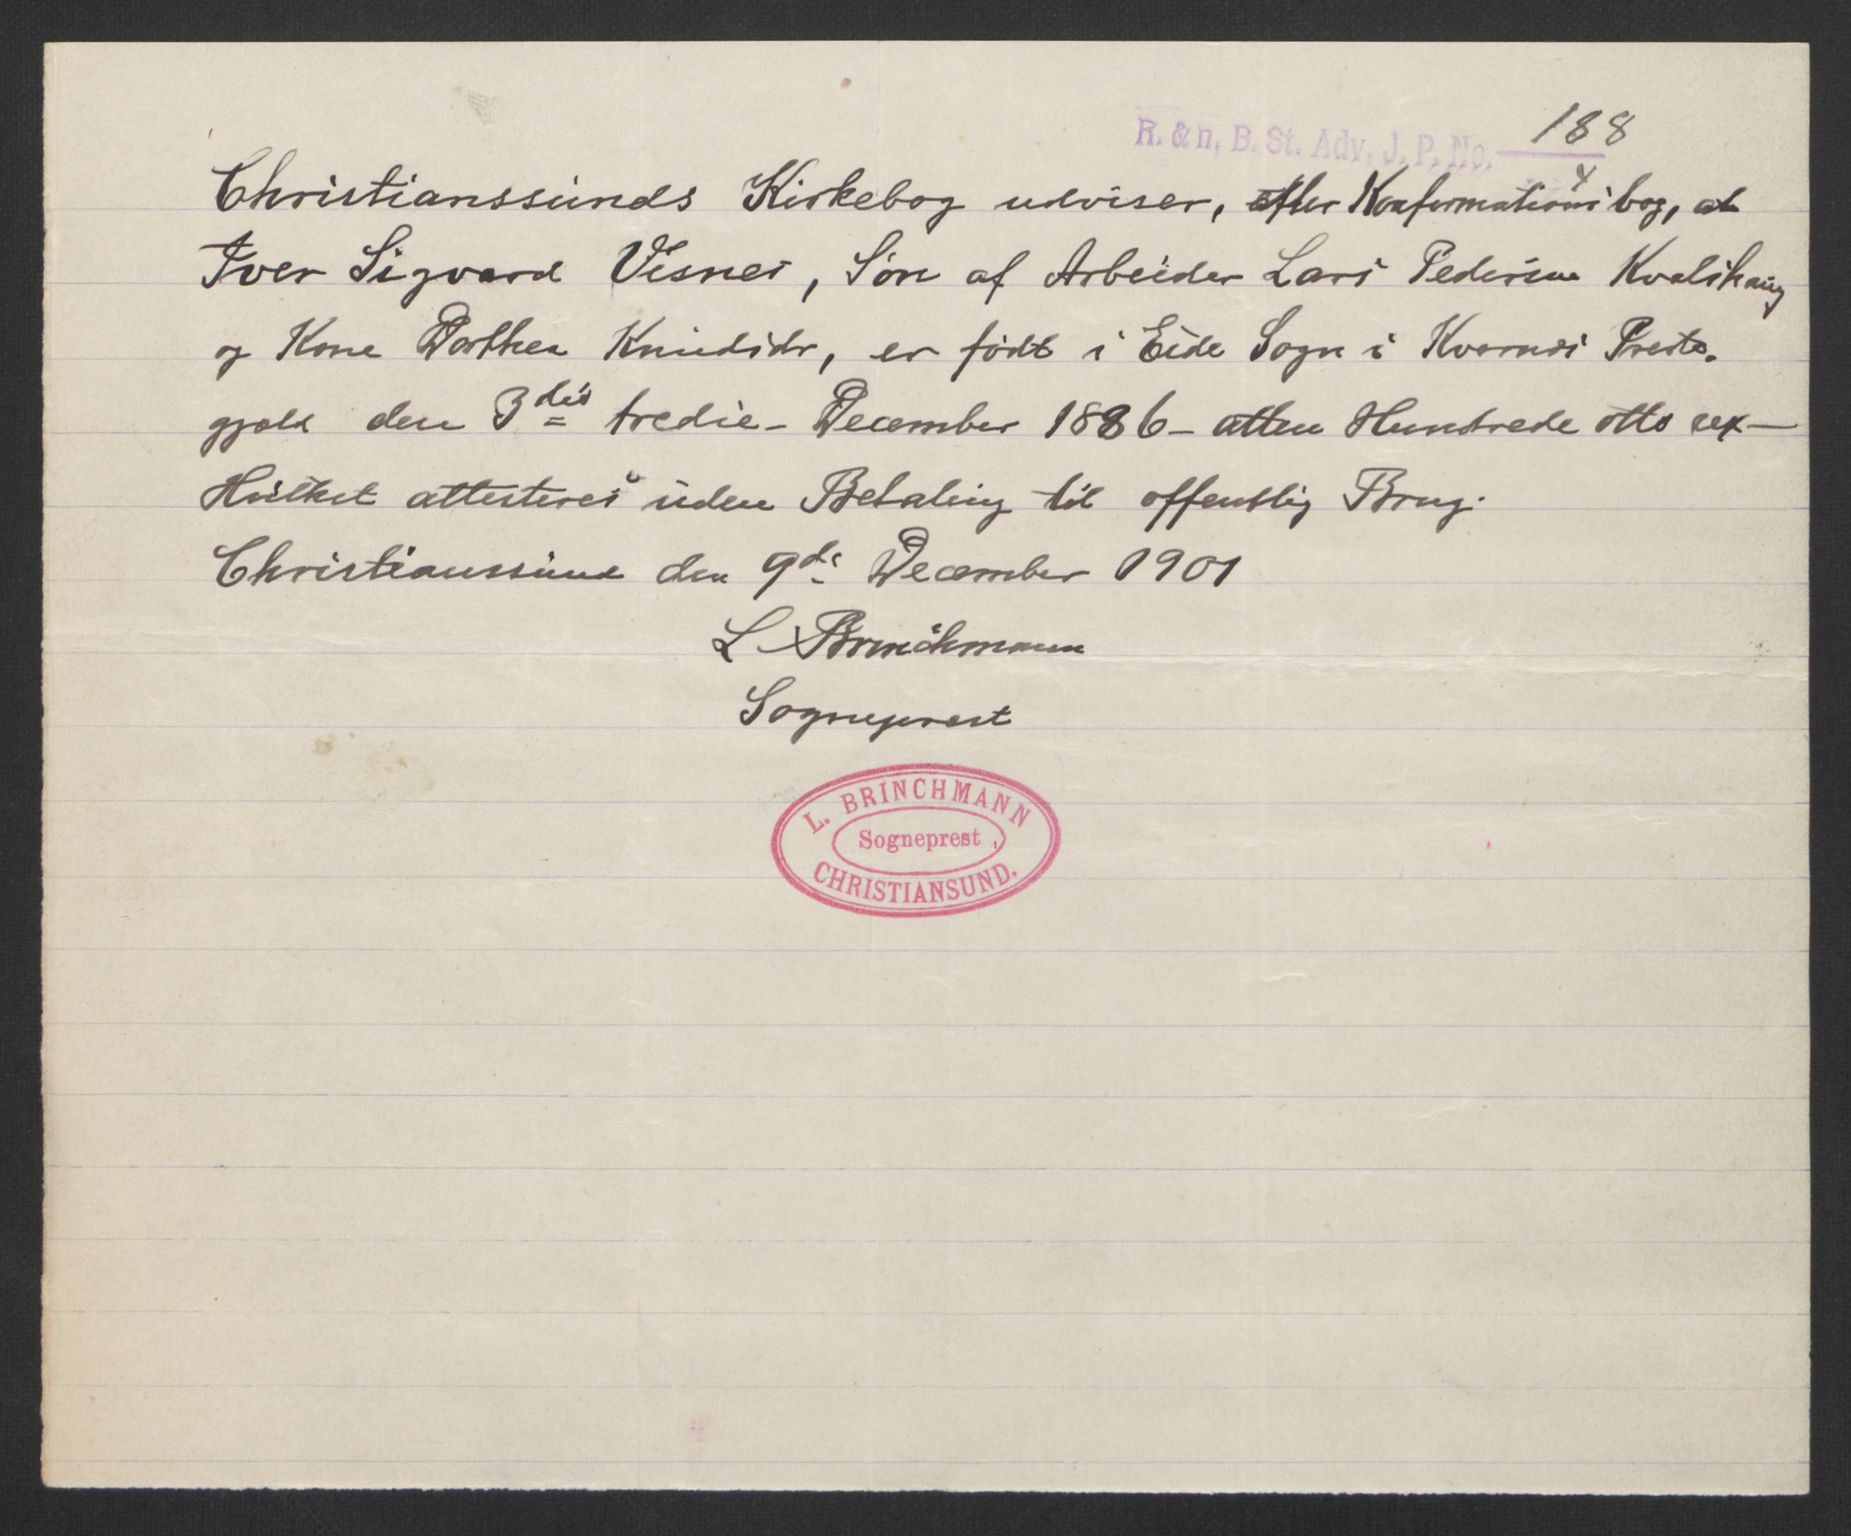 188
R. & n. B. St. Adv. J. P. No.
4
Christianssunds Kirkebog udviser, efter Konfirmationsbog, at
Iver Sigvard Visnes, Søn af Arbeider Lars Pedersen Kvalshaug
og Kone Dorthea Knudsdr, er født i Eide Sogn i Kvernes Preste-
gjeld den 3die tredie - December 1886 - atten Hundrede otto sex -
Hvilket attesteres uden Betaling til offentlig Brug.
Christianssund den 9de December 1901
L Brinchmann
Sogneprest
L. BRINCHMANN
Sogneprest
CHRISTIANSUND.